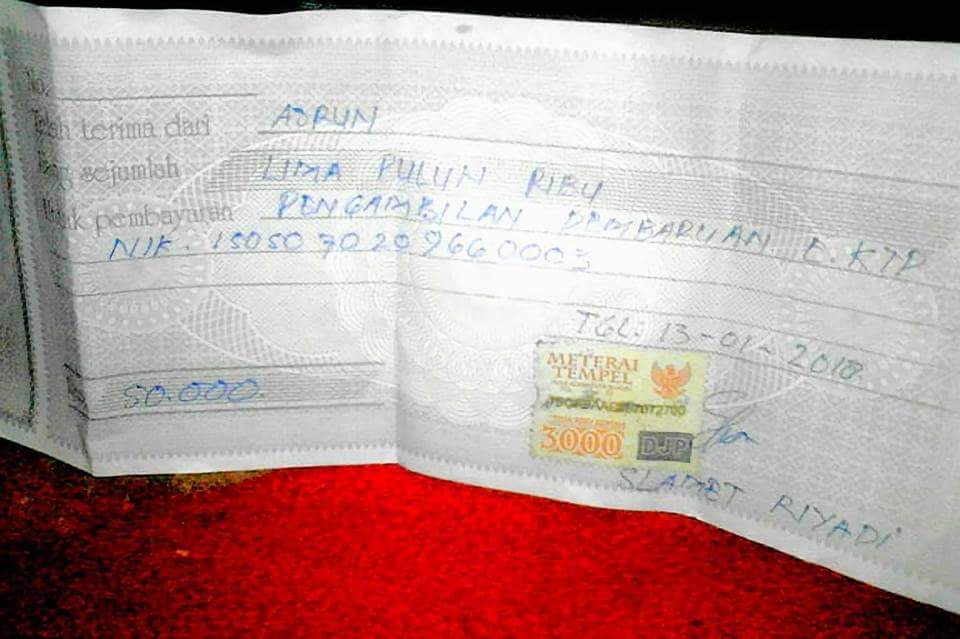 No.
Telah terima dari AJRUN
Uang sejumlah LIMA PULUH RIBU
Untuk pembayaran PENGAMBILAN PEMBARUAN E.KTP
NIK. 1505070209660003
TGL. 13-01-2018.
METERAI
TEMPEL
50.000
3000 DJP
SLAMET RIYADI